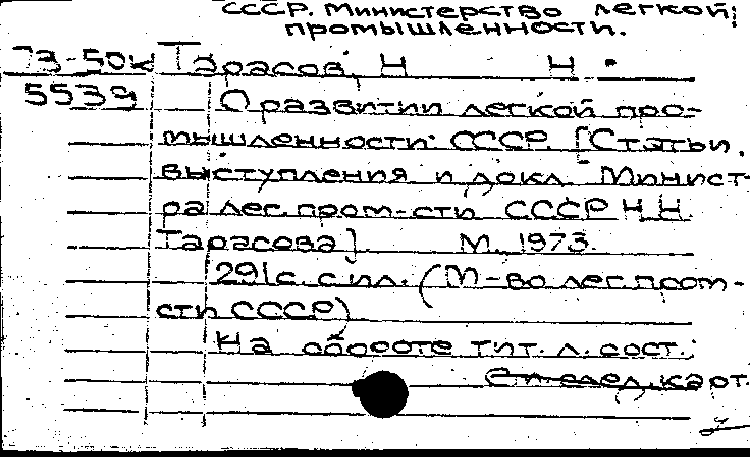 СССР. Министерство легкой
промышленности.
73-50к Тарасов, Н Н.
5539 О развитии легкой про-
мышленности СССР. [Статьи,
выступления и докл. Минист-
ра лег. пром-сти СССР Н.Н.
Тарасова]. М. 1973.
291 с. с ил. (М-во лег. пром-
сти СССР)
На обороте тит. л. сост.:
карт.